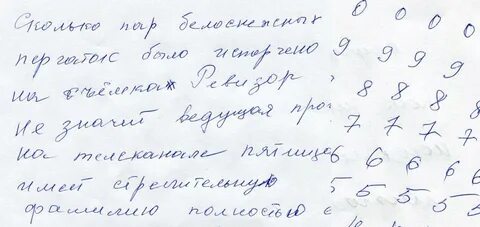 Сколько пар белоснежных 0 0 0 0
перчаток было испорчено 9 9 9 9
на съёмках Ревизор 8 8 8 8
Не значит ведущая прог 7 7 7 7
на телеканале пятница 6 6 6 6
имей стремительную 5 5 5 5
фамилию полностью